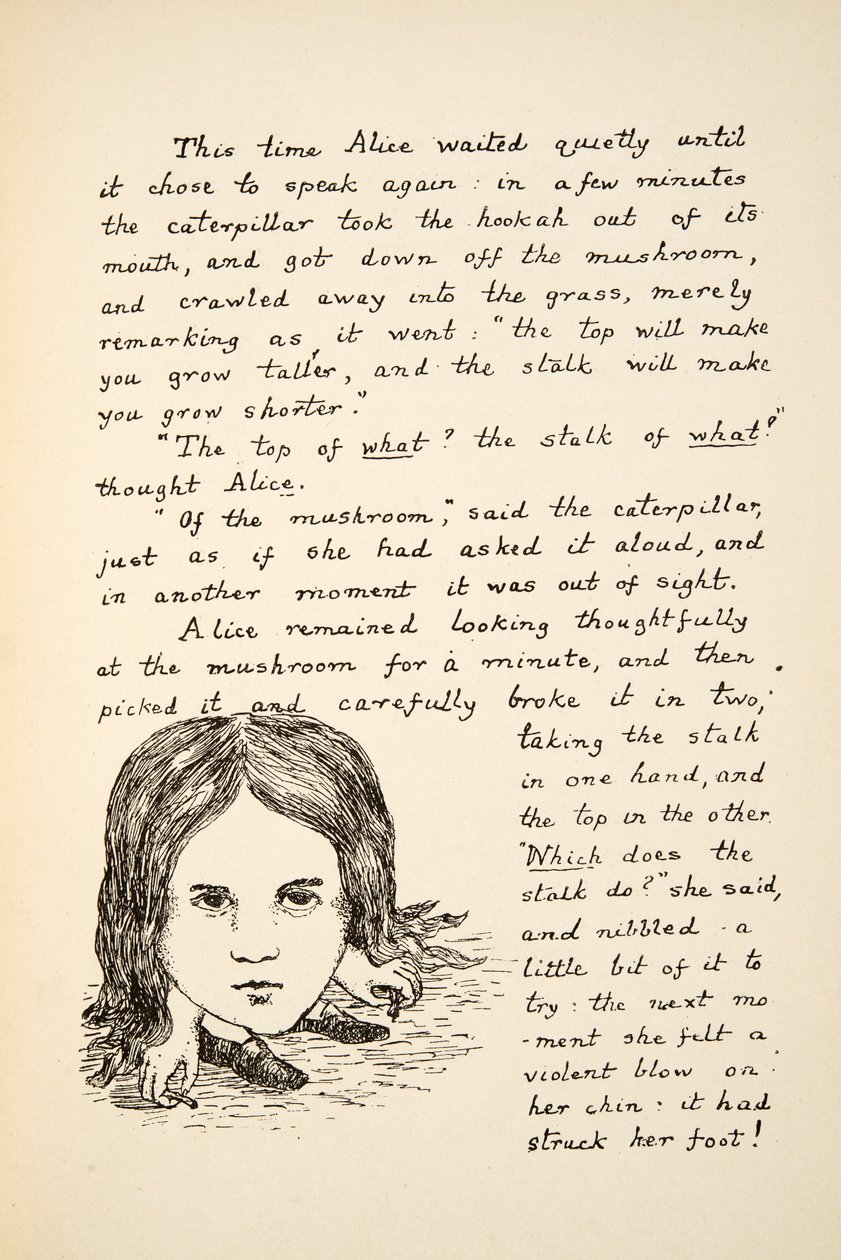 This time Alice waited quietly until
it chose to speak again : in a few minutes
the caterpillar took the hookah out of its
mouth, and got down off the mushroom,
and crawled away into the grass, merely
remarking as it went : "the top will make
you grow taller, and the stalk will make
you grow shorter."
"The top of what? the stalk of what?"
thought Alice.
"Of the mushroom," said the caterpillar,
just as if she had asked it aloud, and
in another moment it was out of sight.
Alice remained looking thoughtfully
at the mushroom for a minute, and then
picked it and carefully broke it in two,
taking the stalk
in one hand, and
the top in the other.
"Which does the
stalk do?" she said,
and nibbled a
little bit of it to
try : the next mo
-ment she felt a
violent blow on
her chin : it had
struck her foot!